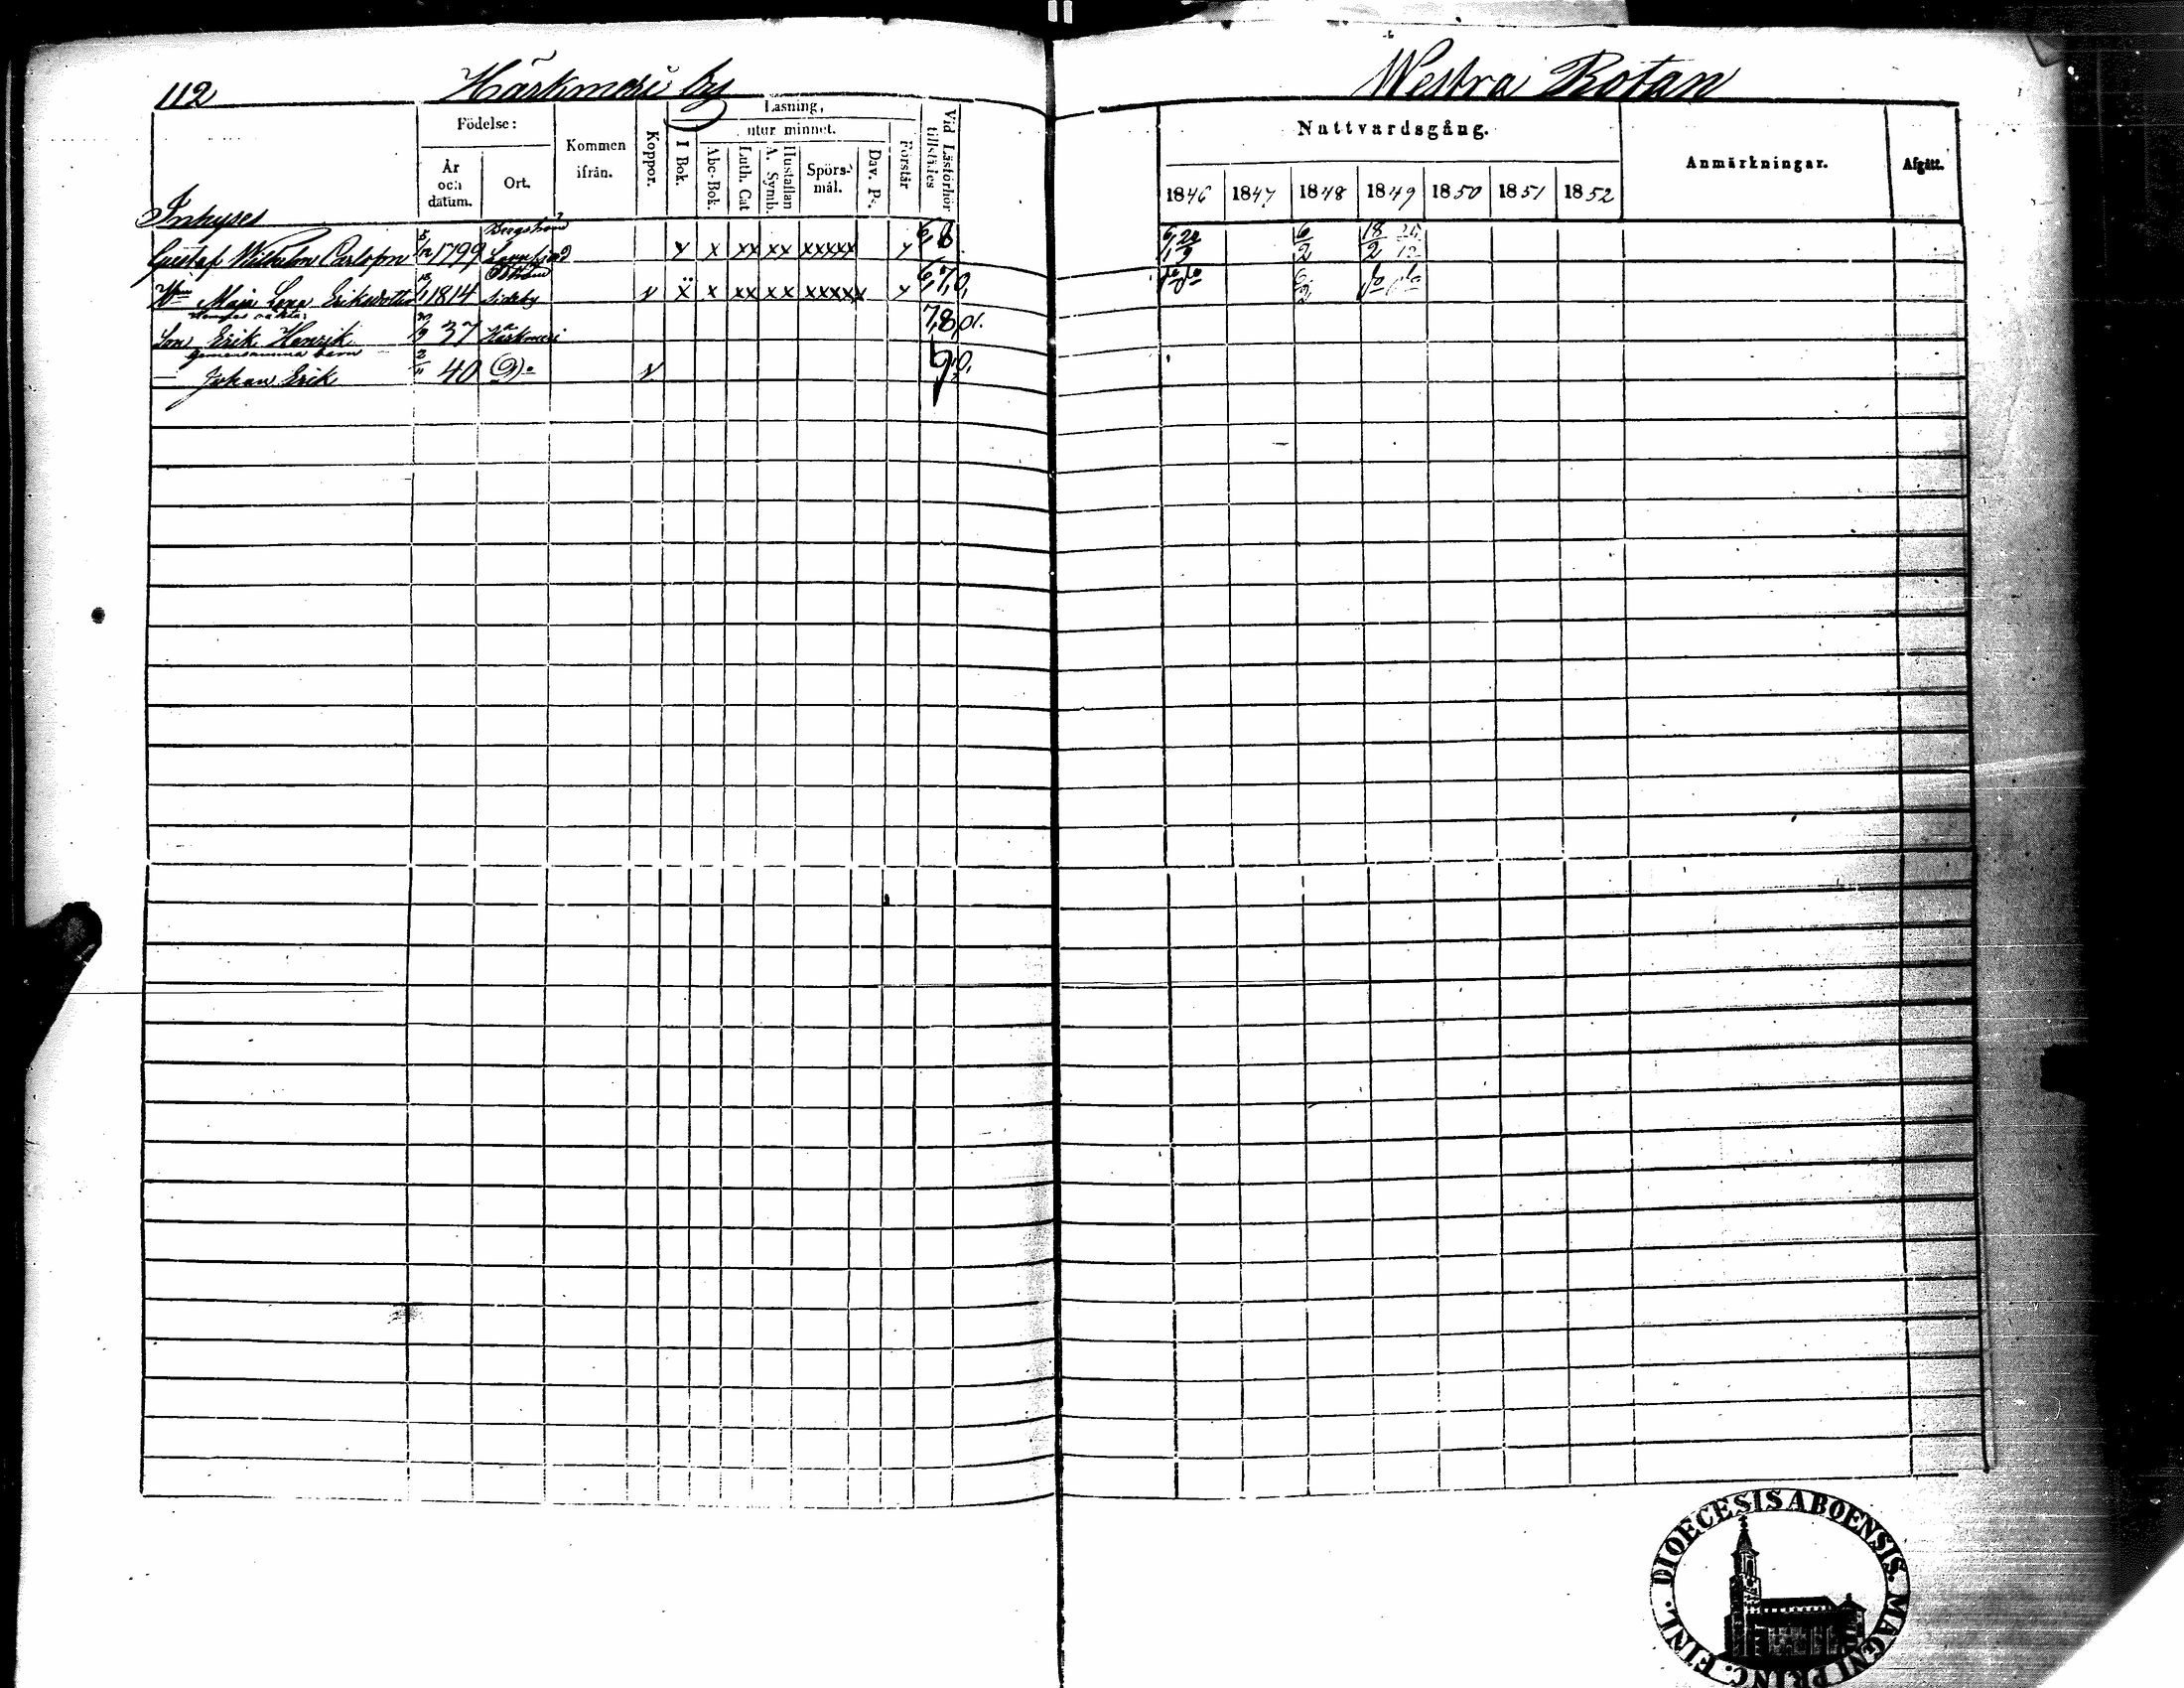 112 Härkmeri by Westra Rotan
Födelse: Kommen ifrån. Koppor. Läsning, utur minnet. Vid Läsförhör tillstädes Nattvardsgång. Anmärkningar. Afgått.
År och datum. Ort. I Bok. Abc-Bok. Luth. Cat A. Symb. Hustaflan Spörs-mål. Dav. Ps. Förstår 1846 1847 1848 1849 1850 1851 1852
Inhyses
Bergström
Gustaf Wilhelm Carlsson 5/12 1799 Lappfjärd x x xx xx xxxxx x 6,8 6/2 18/2
Maja Lena Eriksdotter 1814 Sideby x x x xx xx xxxxx x 6,7,0, 6/2 do do
Hennes oäkta:
Son Erik Henrik 37 Härkmeri 7,8,01.
Gemensamma barn
— Johan Erik 2/11 40 Do x 9,0,
DIOECESIS ABOENSIS. MAGNI PRINC. FINL.